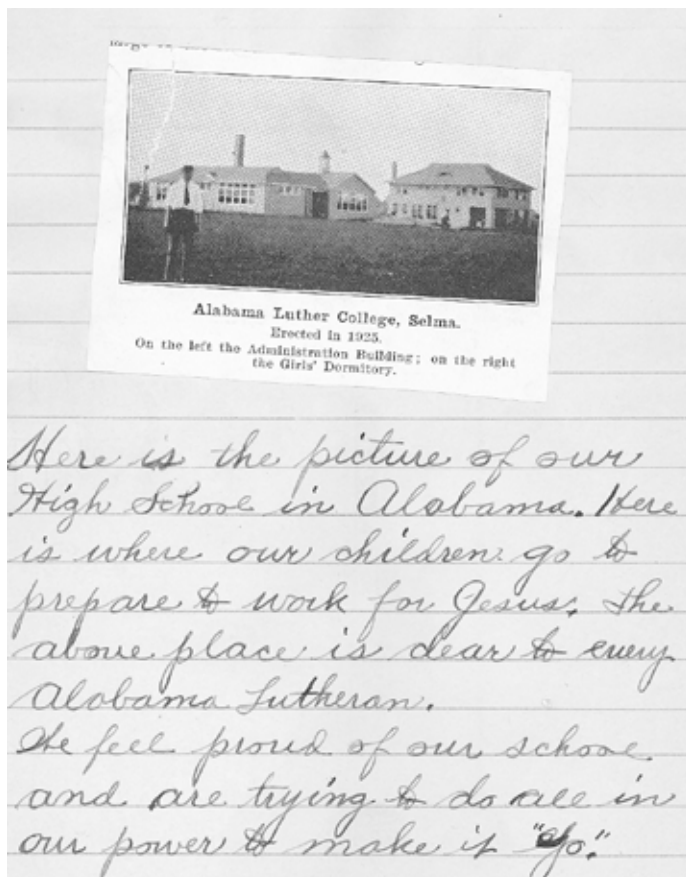 Alabama Luther College, Selma.
Erected in 1925.
On the left the Administration Building; on the right
the Girls' Dormitory.
Here is the picture of our
High School in Alabama. Here
is where our children go to
prepare to work for Jesus. The
above place is dear to every
Alabama Lutheran.
We feel proud of our school
and are trying to do all in
our power to make it "go."